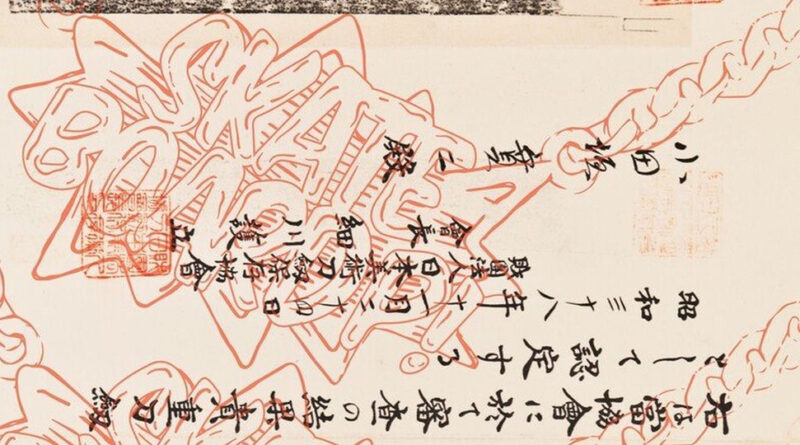 右は當協會に於て審査の結果貴重刀剱
として認定する
昭和三十八年十一月二十四日
財團法人日本美術刀剱保存協會
會長 細川護立
小田 二殿